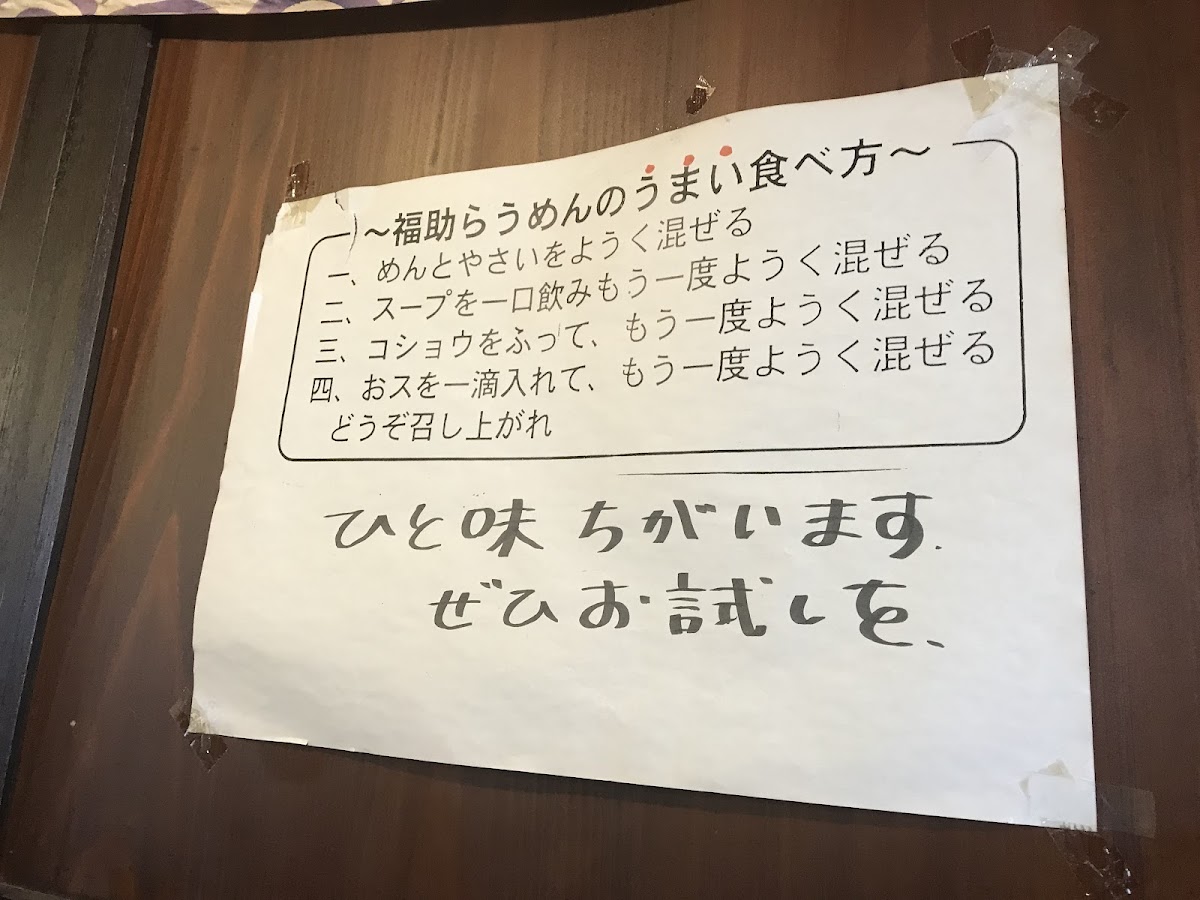 ～福助らうめんのうまい食べ方～
一、めんとやさいをようく混ぜる
二、スープを一口飲みもう一度ようく混ぜる
三、コショウをふって、もう一度ようく混ぜる
四、おスを一滴入れて、もう一度ようく混ぜる
どうぞ召し上がれ
ひと味ちがいます.
ぜひお試しを、